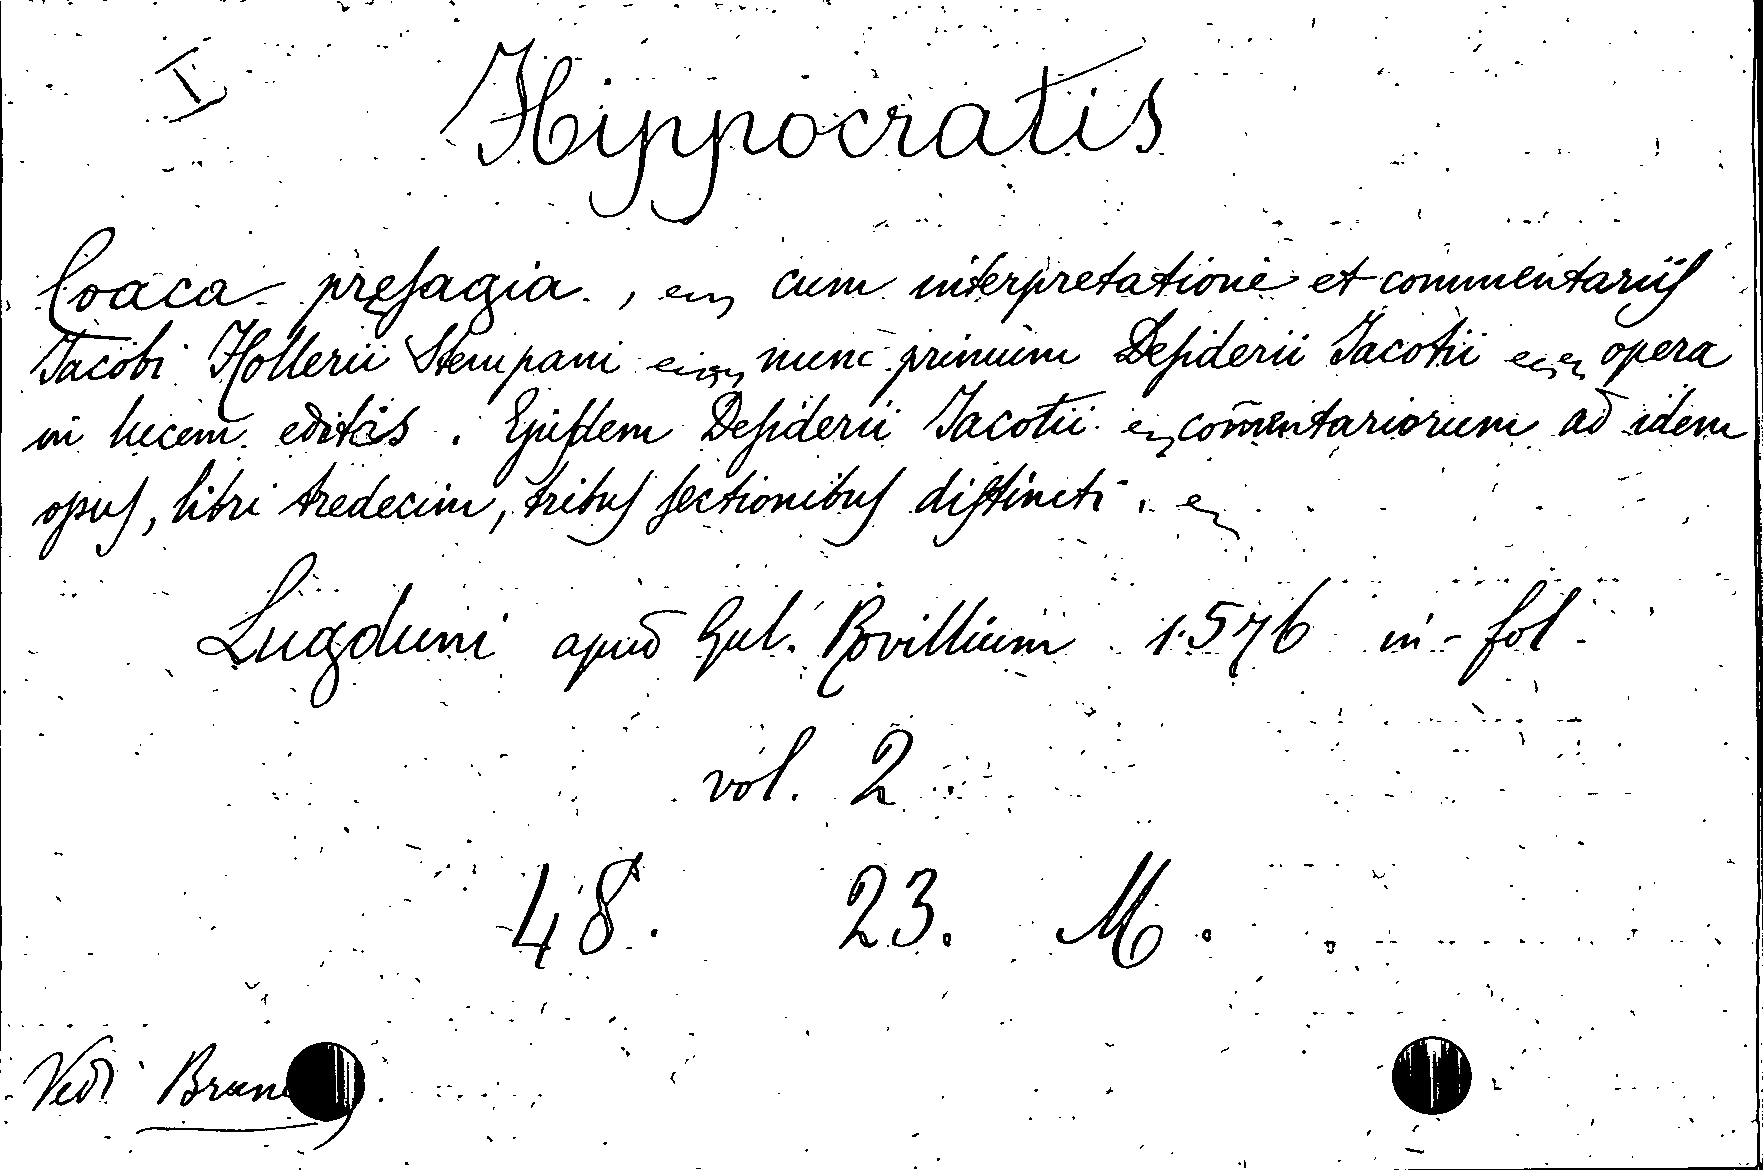 I
Hippocratis
Coaca pręſagia., cum interpretatione et commentariiſ
Jacobi Hollerii Stempani nunc primum Deſiderii Jacotii opera
in lucem editis. Ejuſdem Deſiderii Jacotii com̃entariorum ad idem
opuſ, libri tredecim, tribuſ ſectionibuſ diſtincti.
Lugduni apud Gul. Rovillium 1576 in-fol
vol. 2
48. 23. M.
Vedi